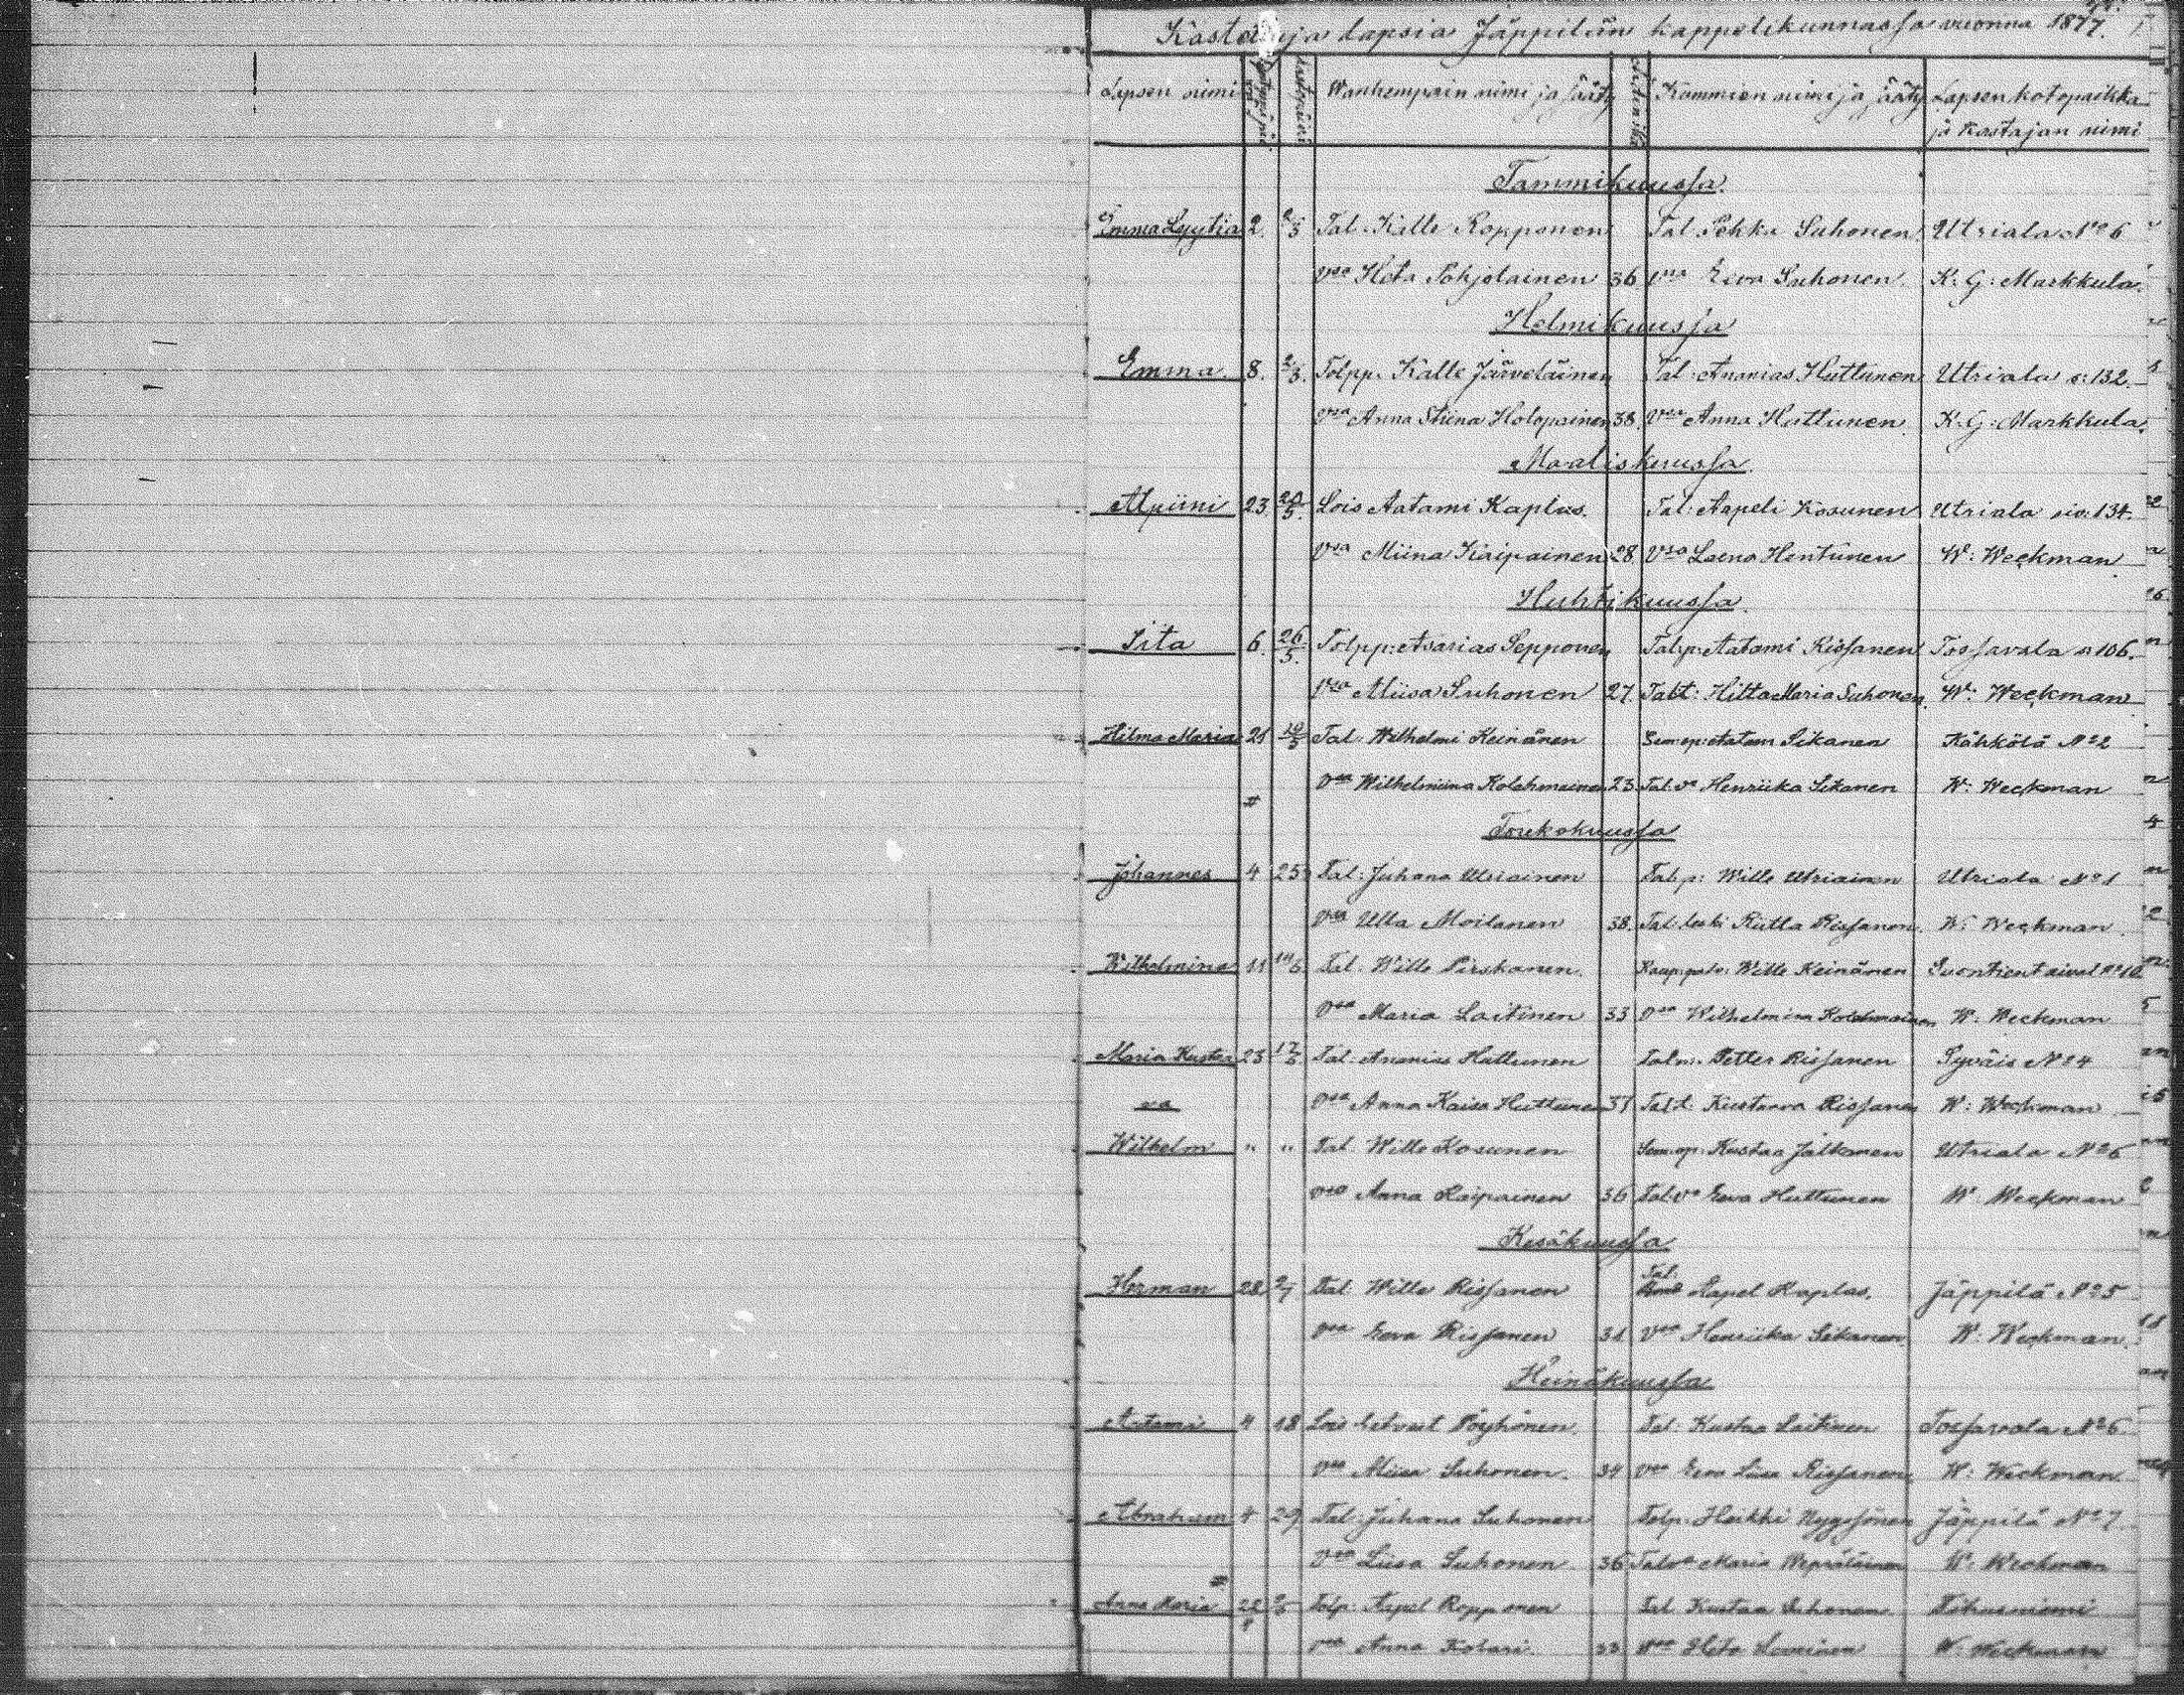 Kastetuja lapsia Jäppilän kappelikunnassa vuonna 1877.
Lapsen nimi Wanhempain nimi ja sääty Kummien nimi ja sääty Lapsen kotopaikka
ja Kastajan nimi
Tammikuussa
Emma Lyytia 2. 2/3 Tal. Kalle Ropponen Tal. Pekka Suhonen Utriala No 6
vsa Heta Pohjolainen 36 vsa Eeva Suhonen. K. G: Markkula.
Helmikuussa
Emma. 8. 2/3. Tolpp. Kalle Järveläinen Tal: Ananias Huttunen Utriala s: 132.
vsa Anna Stiina Holopainen 38. vsa Anna Huttunen K. G: Markkula.
Maaliskuussa
Alpiini 23. 20/5. Lois Aatami Kaplas. Tal: Aapeli Kosunen Utriala siv: 134.
vsa Miina Kaipainen 28 vsa Leena Hentunen W: Weckman
Huhtikuussa
Iita 6. 26/5. Tolpp: Asarias Sepponen Talp: Aatami Rissanen Tossavala s. 106.
vsa Miisa Suhonen 27. Talt: Hilta Maria Suhonen W: Weckman
Hilma Maria 21 10/5 Tal. Wilhelmi Keinänen Aatam Sikanen Kähkölä No 2
vsa Wilhelmiina Kolehmainen 23. Tal. va Henriika Sikanen W: Weckman
Toukokuussa
Johannes 4 25 Tal: Juhana Utriainen Talp: Wille Utriainen Utriala No 1
vsa Ulla Moilanen 38. Tal. leski Riitta Rissanen. W: Weckman
Wilhelmina 11 Tal. Wille Pirskanen. Wille Keinänen Suontientaival No 10
vsa Maria Laitinen 33 vsa Wilhelmina Kolehmainen W. Weckman
Maria Kusta 23 17/6 Tal. Ananias Huttunen Talp. Petter Rissanen Syväis No 4
va vsa Anna Kaisa Huttunen 37 Talt. Kustaava Rissanen W: Weckman
Wilhelm " " Tal. Wille Kosunen Kustaa Jalkanen Utriala No 6
vsa Anna Kaipainen 36 Tal. va Eeva Huttunen W. Weckman
Kesäkuussa
Herman 28 2/7 Tal. Wille Rissanen Tal: Aapel Kaplas. Jäppilä No 25
vsa Eeva Rissanen 31 vsa Henriika Sikanen W: Weckman.
Heinäkuussa
Aatami 4 18 Lois Pöyhönen. Tal: Kustaa Laitinen Tossavala No 6
vsa Miina Suhonen. 34 vsa Eeva Liisa Rissanen W: Weckman
Abraham 4 29 Tal: Juhana Suhonen Tolp. Heikki Nyyssönen Jäppilä No 7
vsa Liisa Suhonen 36 Talva Maria Wepsäläinen W: Weckman
Anna Maria 22 Tolp: Aapel Ropponen Tal Kustaa Suhonen Tihusniemi
vsa Anna Kolari. 33 vsa Heta W: Weckman